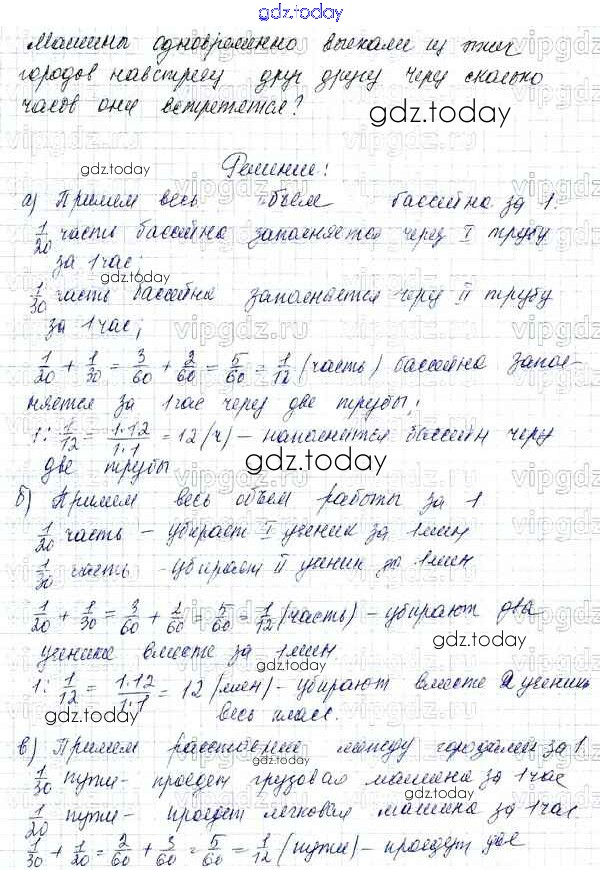 gdz.today
Машины одновременно выехали из этих
городов навстречу друг другу через сколько
часов они встретятся?
gdz.today
gdz.today
Решение:
а) Примем весь объем бассейна за 1.
1/20 часть бассейна заполняется через I трубу
за 1 час;
gdz.today
1/30 часть бассейна заполняется через II трубу
за 1 час;
1/20 + 1/30 = 3/60 + 2/60 = 5/60 = 1/12 (часть) бассейна запол-
няется за 1 час через две трубы;
1 : 1/12 = 1·12/1·1 = 12 (ч) – наполнится бассейн через
две трубы
gdz.today
б) Примем весь объем работы за 1
1/20 часть – убирает I ученик за 1 мин
1/30 часть – убирает II ученик за 1 мин
1/20 + 1/30 = 3/60 + 2/60 = 5/60 = 1/12 (часть) – убирают два
gdz.today
ученика вместе за 1 мин
gdz.today
1 : 1/12 = 1·12/1·1 = 12 (мин) – убирают вместе 2 ученик
весь класс.
gdz.today
в) Примем расстояние между городами за 1.
1/30 пути – проедет грузовая машина за 1 час
1/20 пути – проедет легковая машина за 1 час.
gdz.today
1/30 + 1/20 = 2/60 + 3/60 = 5/60 = 1/12 (пути) – проедут две